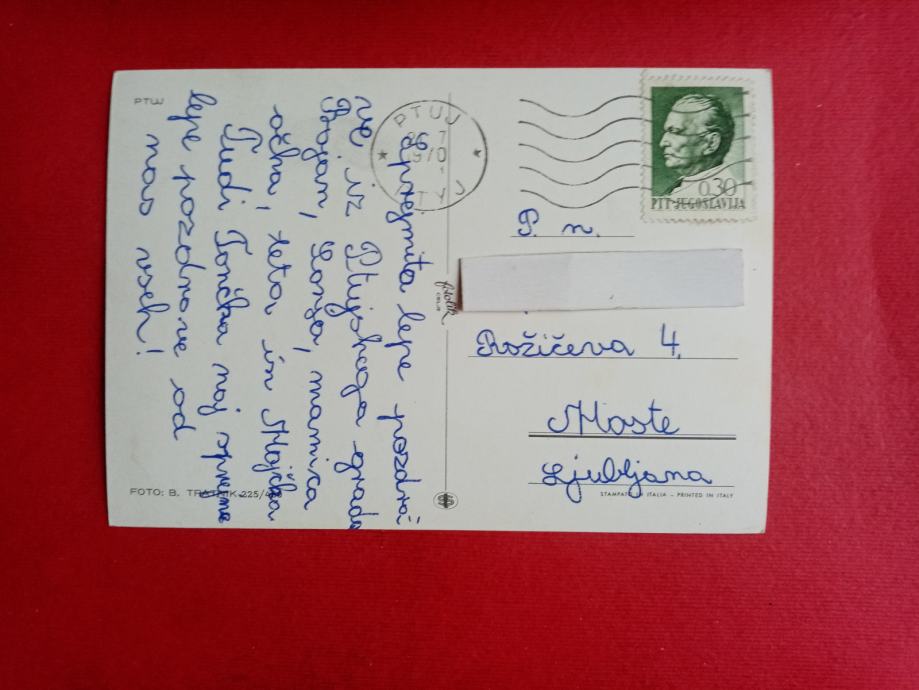 PTUJ
Sprejmita lepe pozdra-
ve iz Ptujskega grada
Bojan, Sonja, mamica
očka, teta in Mojčka
Tudi Tončka naj sprejme
lepe pozdrave od
nas vseh!
FOTO: B. TRATNIK 225/4
PTUJ
1970
0.30
PTT JUGOSLAVIJA
P. n.
Rožičeva 4.
Moste
Ljubljana
STAMPATO IN ITALIA - PRINTED IN ITALY